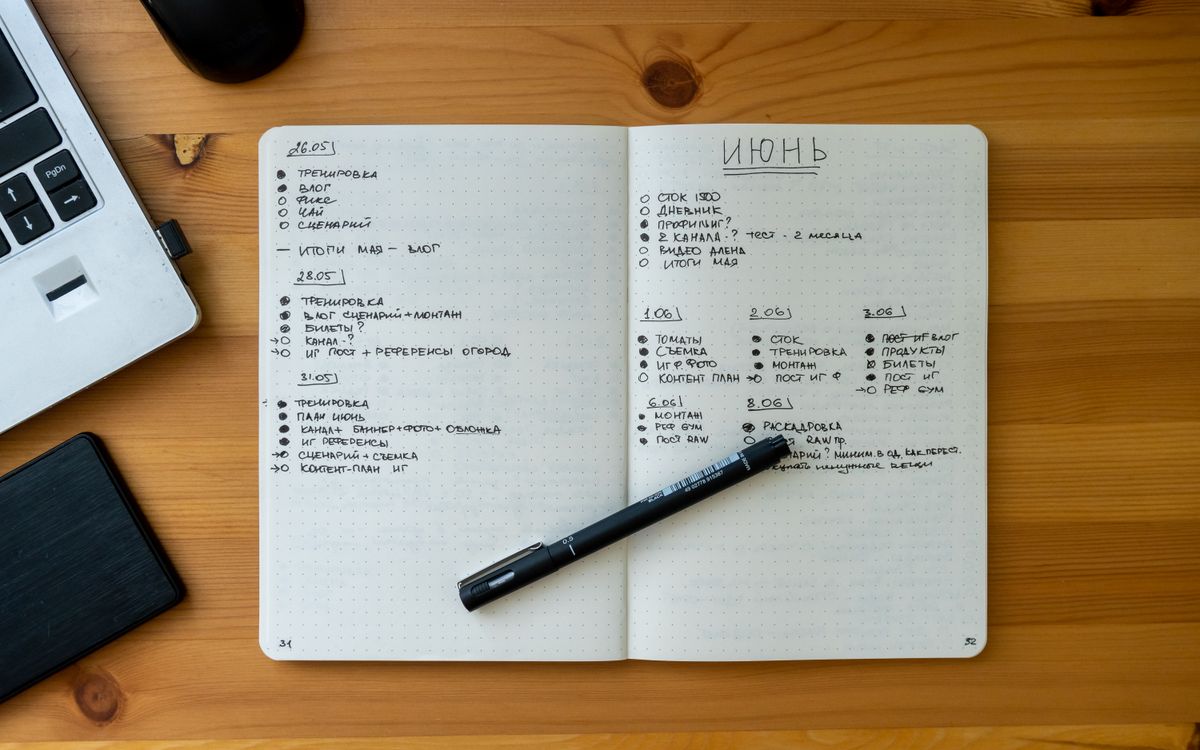 PgDn
26.05
ТРЕНИРОВКА
ВЛОГ
ФИКС
ЧАЙ
СЦЕНАРИЙ
— ИТОГИ МАЯ — ВЛОГ
28.05
ТРЕНИРОВКА
ВЛОГ СЦЕНАРИЙ+МОНТАЖ
БИЛЕТЫ?
КАНАЛ-?
ИГ ПОСТ + РЕФЕРЕНСЫ ОГОРОД
31.05
ТРЕНИРОВКА
ПЛАН ИЮНЬ
КАНАЛ+ БАННЕР+ФОТО+ ОБЛОЖКА
ИГ РЕФЕРЕНСЫ
СЦЕНАРИЙ + СЪЕМКА
КОНТЕНТ-ПЛАН ИГ
31
ИЮНЬ
СТОК 1500
ДНЕВНИК
ПРОФИЛЬ ИГ?
2 КАНАЛА-? ТЕСТ - 2 МЕСЯЦА
ВИДЕО АЛЕНА
ИТОГИ МАЯ
1.06
ТОМАТЫ
СЪЕМКА
ИГ Ф. ФОТО
КОНТЕНТ ПЛАН
2.06
СТОК
ТРЕНИРОВКА
МОНТАЖ
ПОСТ ИГ Ф
3.06
ПОСТ ИГ ВЛОГ
ПРОДУКТЫ
БИЛЕТЫ
ПОСТ ИГ
РЕФ GYM
6.06
МОНТАЖ
РЕФ GYM
ПОСТ RAW
8.06
РАСКАДРОВКА
RAW ПР.
? МИНИМ. В ОД. КАК ПЕРЕСТ.
ненужные вещи
32
0.5
BLACK